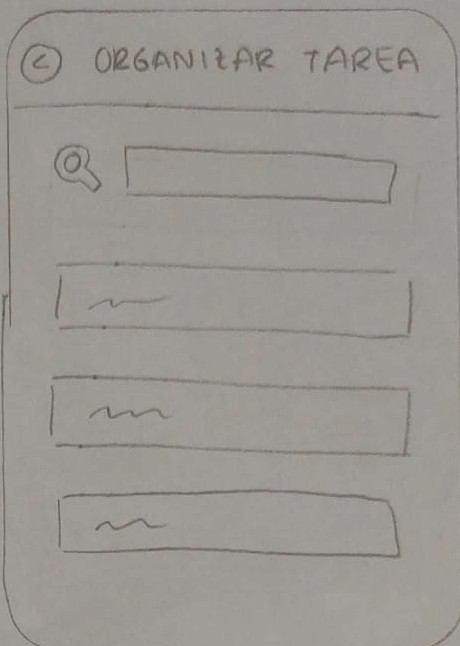 ORGANIZAR TAREA